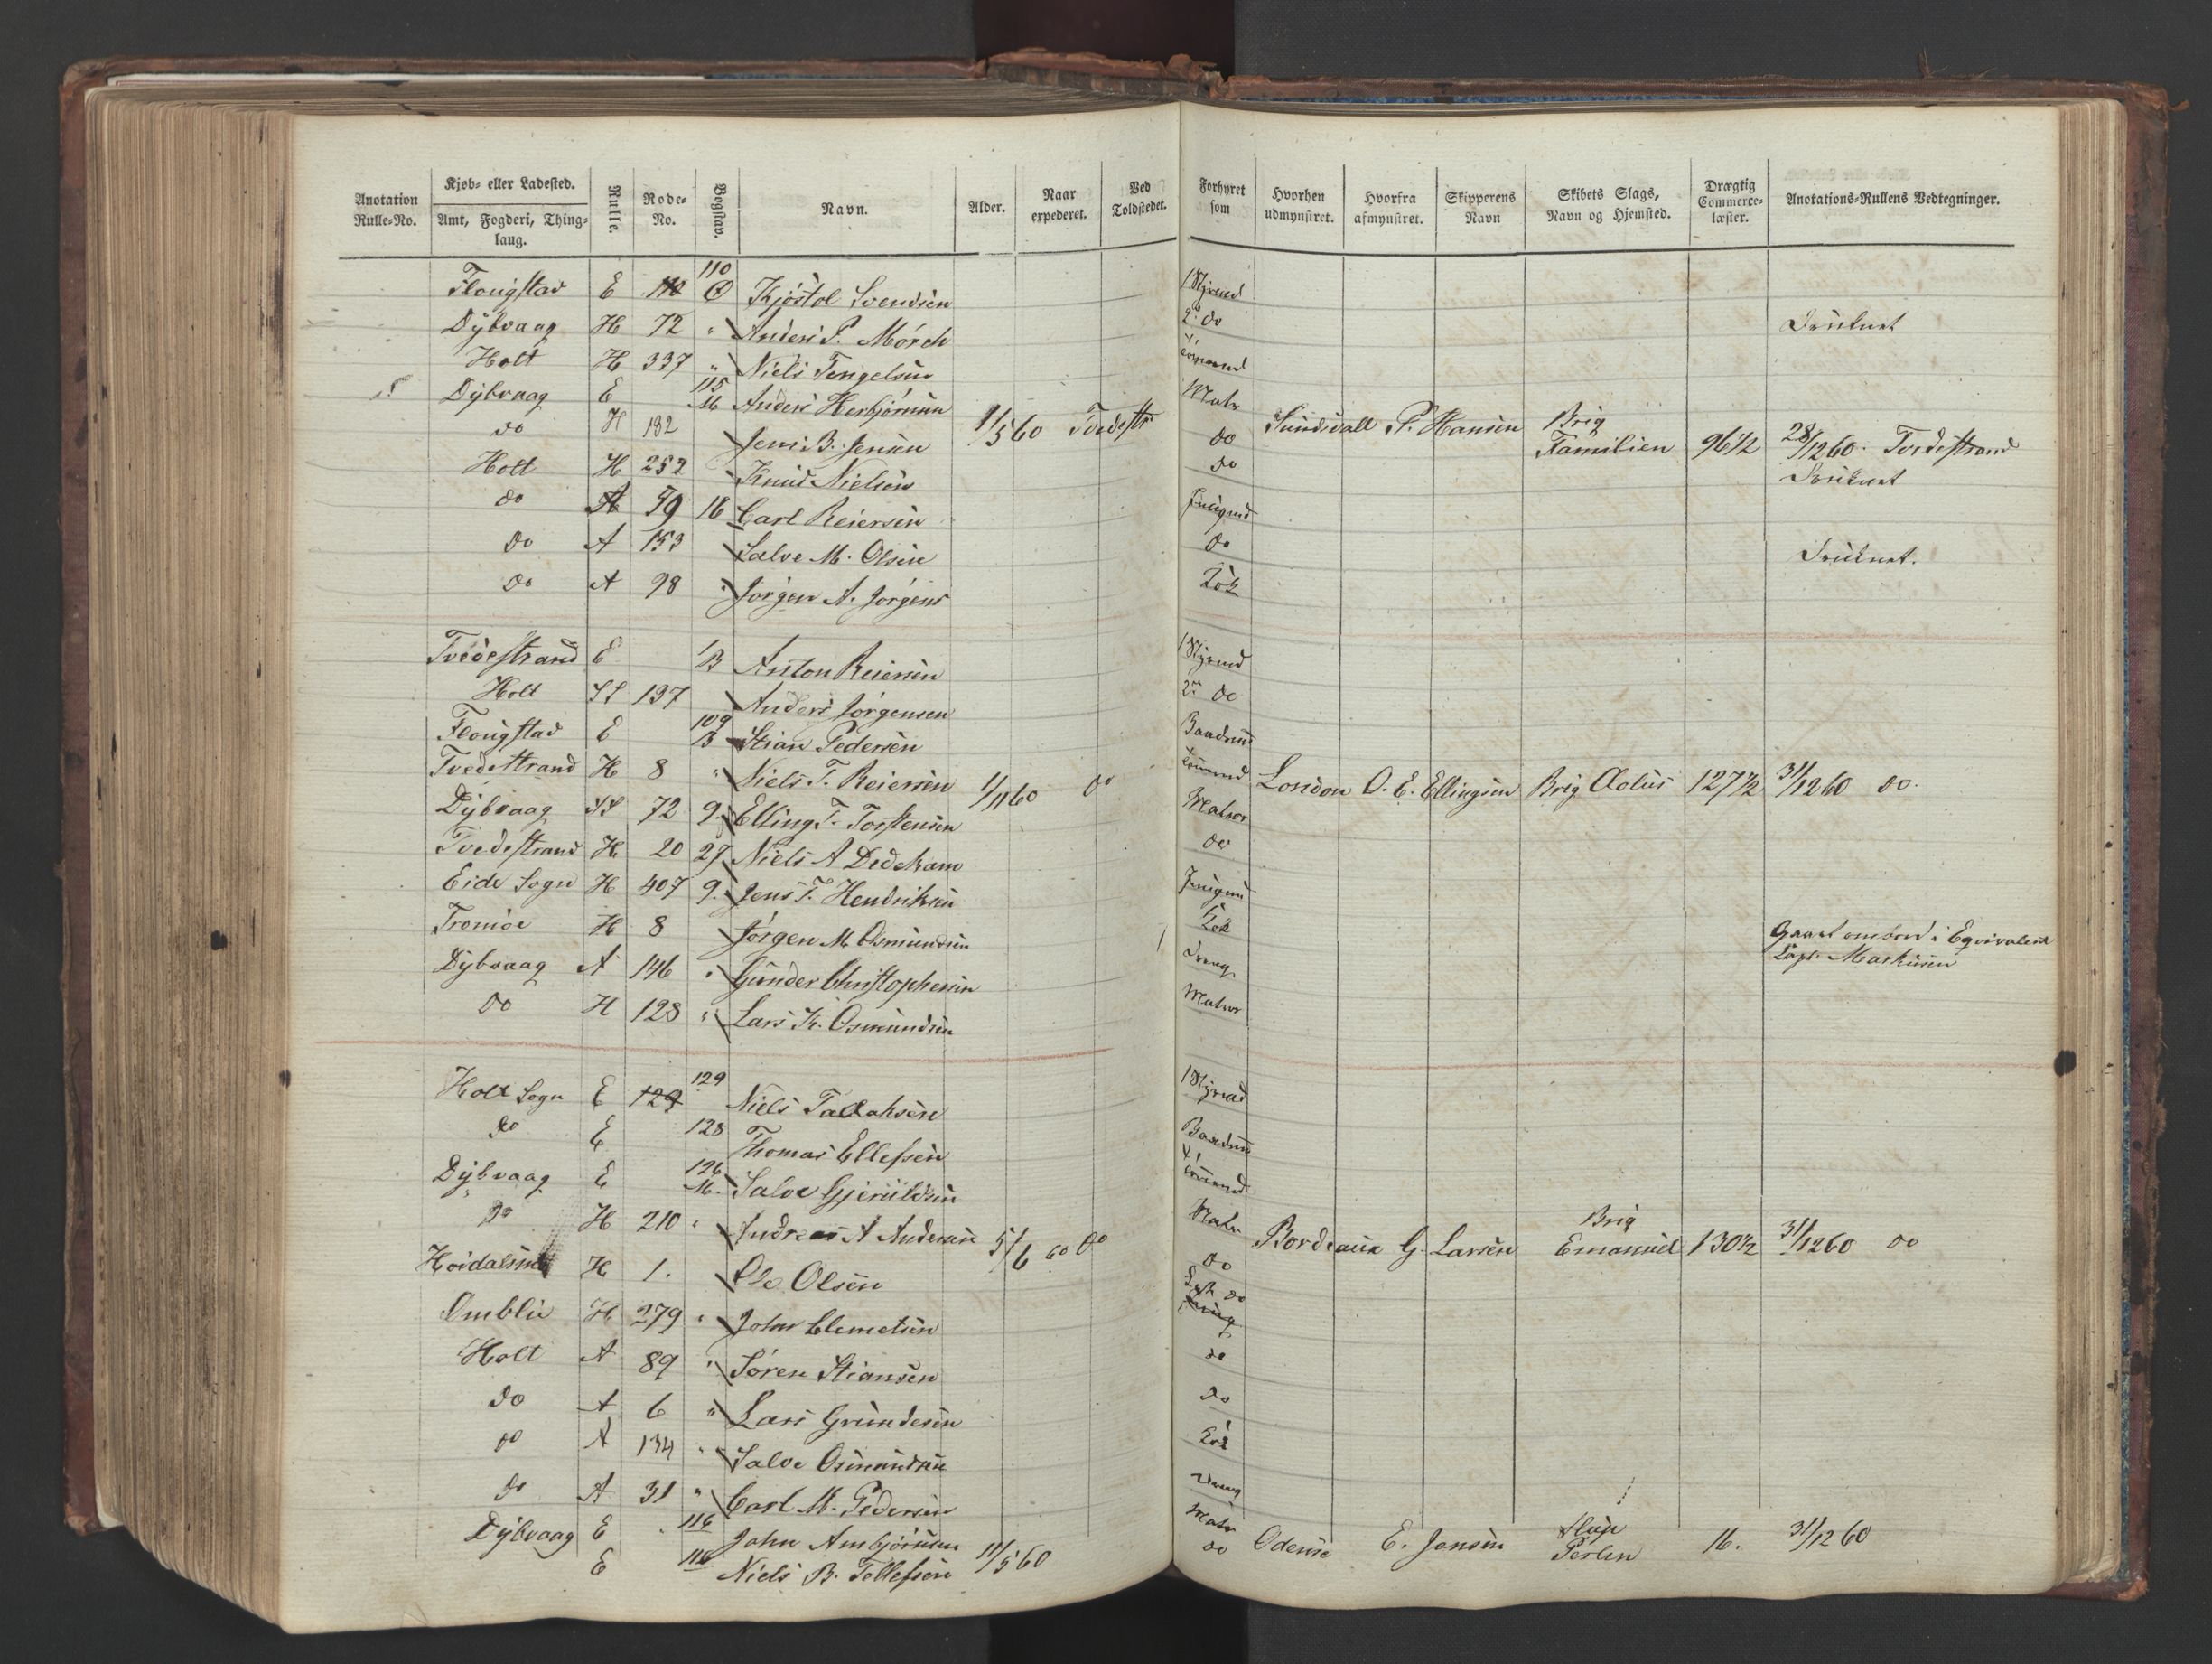 Anotation Rulle-No. | Kjøb- eller Ladested. Amt, Fogderi, Thinglaug. | Rulle. | Rode-No. | Bogstav. | Navn. | Alder. | Naar expederet. | Ved Toldstedet. | Forhyret som | Hvorhen udmynstret. | Hvorfra afmynstret. | Skipperens Navn | Skibets Slags, Navn og Hjemsted. | Drægtig Commerce-læster. | Anotations-Rullens Vedtegninger.
Flougstad E 110 Kjöstol Svendsen 1 Styrmd
Dÿbvaag H 72 " Anders P. Mörch 2 do
Holt H 337 " Niels Tengelsen
Dÿbvaag E 115 M Anders Herbjörnsen Matr
do H 182 Jens B. Jensen 1/5 60 Tvedestr do Sundsvall P. Hansen Brig Familien 96 1/2 28/12 60. Tvedestrand
Holt H 252 Knud Nielsen do
do A 59 18 Carl Reiersen Jungmd
do A 153 Salve M. Olsen do
do A 98 Jörgen A. Jörgens Kok
Tvedestrand E B Anton Reiersen 1 Styrmd
Holt SS 137 Anders Jörgensen 2 do
Flougstad E 109 B Stian Pedersen Baadsmd
Tvedestrand H 8 " Niels T. Reiersen 1/11 60 do Tömmrmd London O. E. Ellingsen Brig Æolus 127 1/2 31/12 60 do.
Dÿbvaag SS 72 9. Elling T. Torstensen Matros
Tvedestrand H 20 27 Niels A Dedekam do
Eide Sogn H 407 9. Jens T. Hendriksen Jungm
Tromöe H 8 Jörgen M Osmundsen Kok Gaaet ombord i Eqvivalent Capt. Markusen
Dÿbvaag A 146 Gunder Christophersen Dreng
do H 128 " Lars K. Osmundsen Matros
Holt Sogn E 129 129 Niels Tallaksen 1 Styrmd
do E 128 Thomas Ellefsen Baadsm
Dÿbvaag E 126 M. Salve Gjeruldsen Tömmrmd
do H 210 Andreas A Andersen 5/6 60 do Matr Bordeaux G. Larsen Brig Emanuel 130 1/2 31/12 60 do
H 1. Ole Olsen do
Omblie H 279 John Clemetsen do
Holt A 89 " Sören Stiansen do
do A 6 " Lars Grundesen do
do A 134 " Salve Osmundsen Kok
do A 31 " Carl M. Pedersen Dreng
Dÿbvaag E 116 John Ambjörnsen Matr Odense E. Jensen Slup Perlen 16. 31/12 60
E 110 Niels B. Tellefsen 11/5 60 do